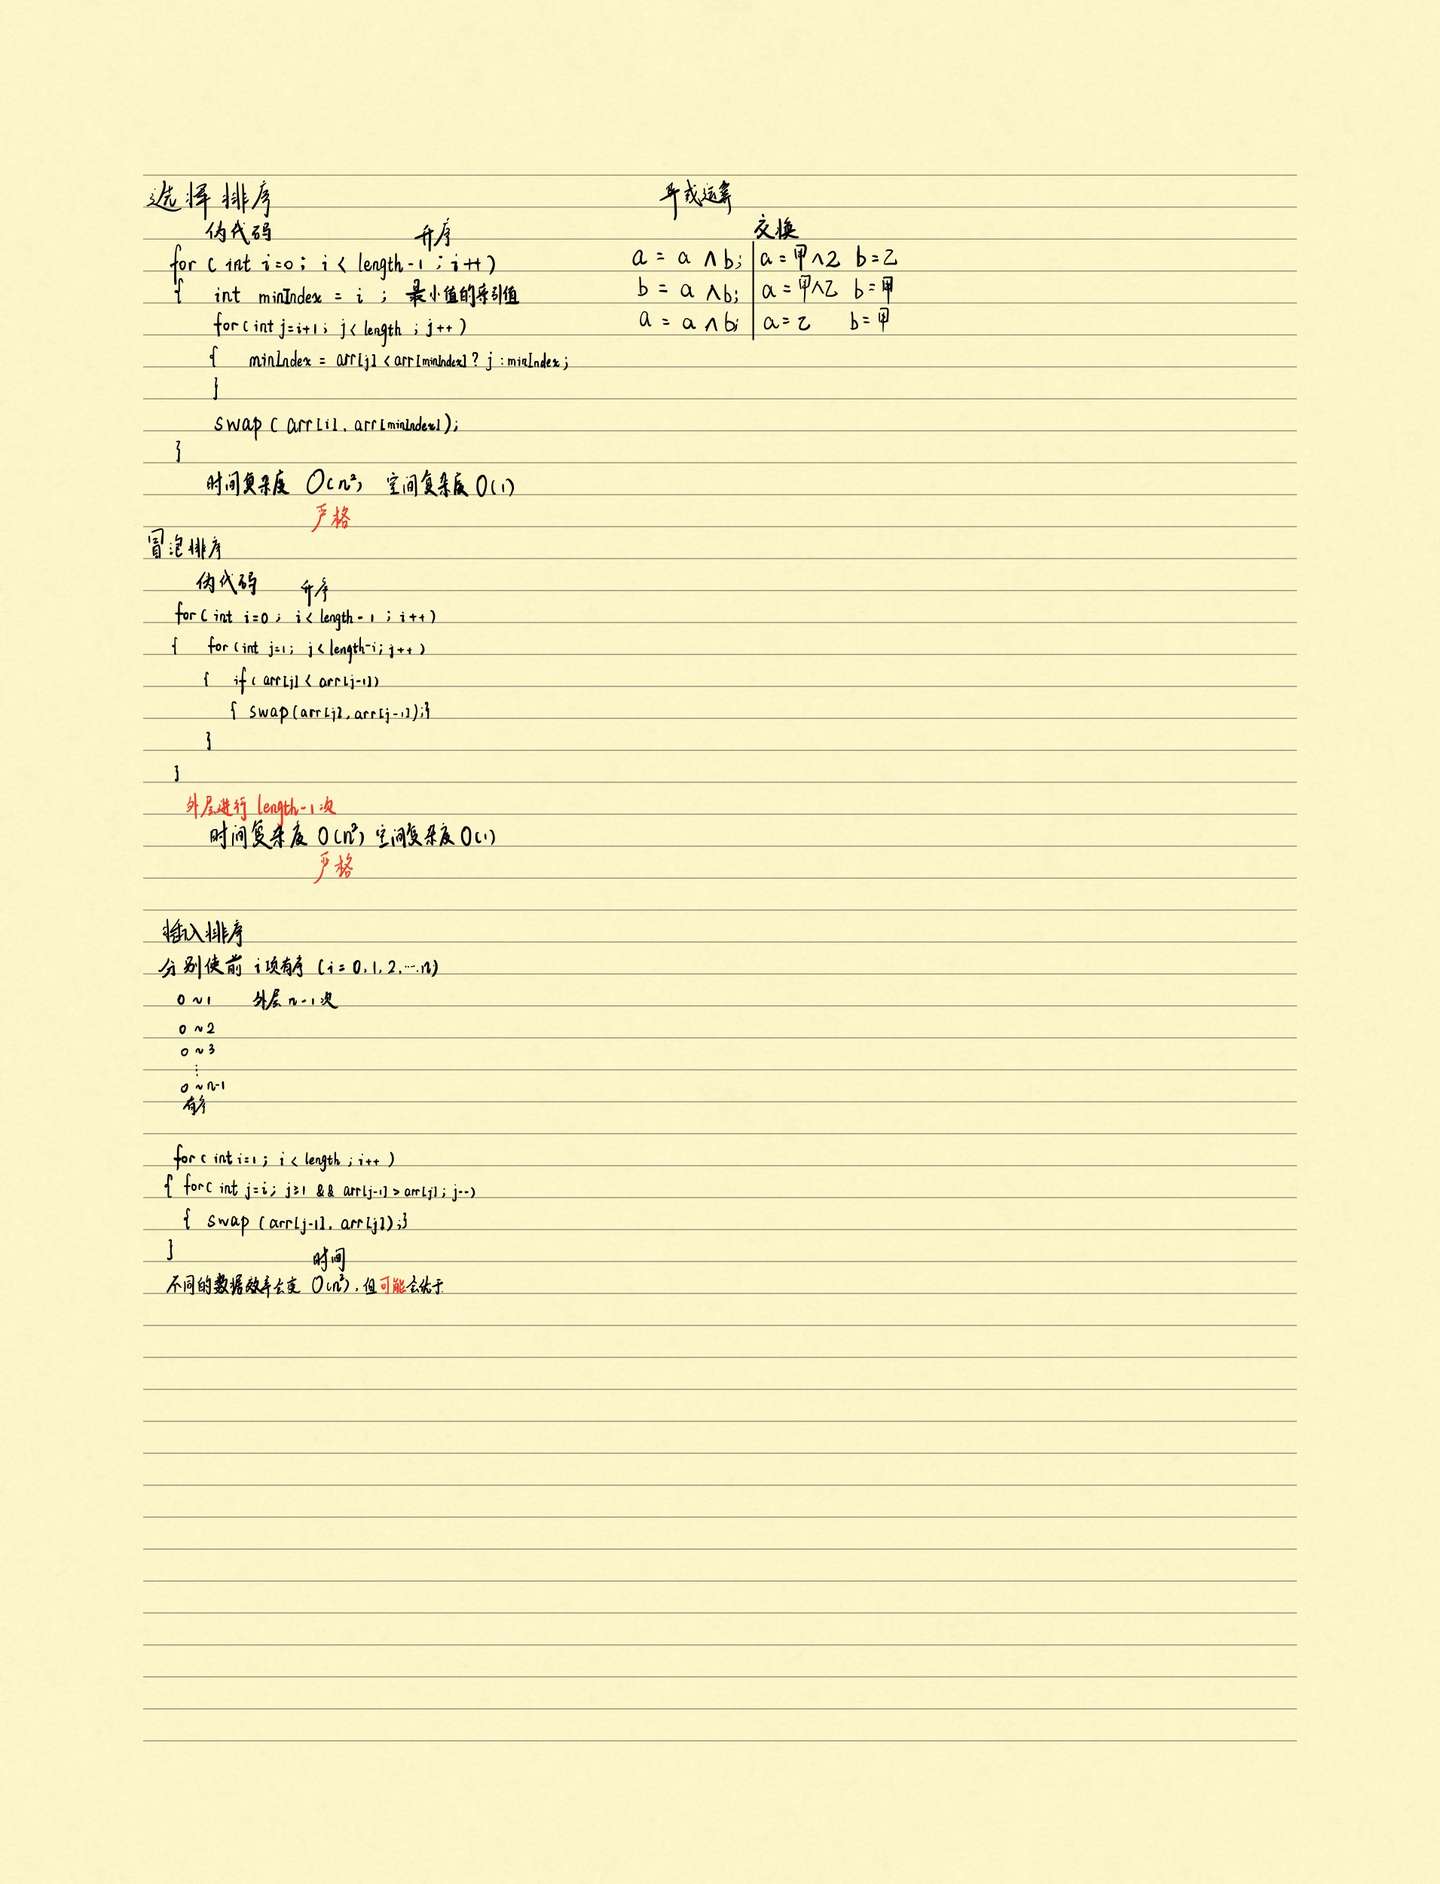 选择排序
伪代码 升序
for ( int i=0; i < length-1 ; i++)
{ int minIndex = i ; 最小值的索引值
for(int j=i+1; j<length ; j++)
{ minIndex = arr[j] <arr[minIndex]? j :minIndex;
}
swap ( arr[i], arr[minIndex]);
}
时间复杂度 O(n²) 空间复杂度 O(1)
严格
异或运算
交换
a = a ∧ b; a=甲∧乙 b=乙
b = a ∧b; a=甲∧乙 b=甲
a = a ∧ b; a=乙 b=甲
冒泡排序
伪代码 升序
for( int i=0; i<length-1 ; i++)
{ for(int j=1; j<length-i; j++)
{ if( arr[j] < arr[j-1])
{ swap(arr[j], arr[j-1]);}
}
}
外层进行 length-1次
时间复杂度 O(n²) 空间复杂度 O(1)
严格
插入排序
分别使前 i项有序 (i=0,1,2,…,n)
0~1 外层n-1次
0~2
0~3
⋮
0~n-1
有序
for( int i=1; i<length ; i++)
{ for( int j=i; j≥1 && arr[j-1]>arr[j]; j--)
{ swap (arr[j-1], arr[j]);}
}
时间
不同的数据效率会变 O(n²), 但可能会优于